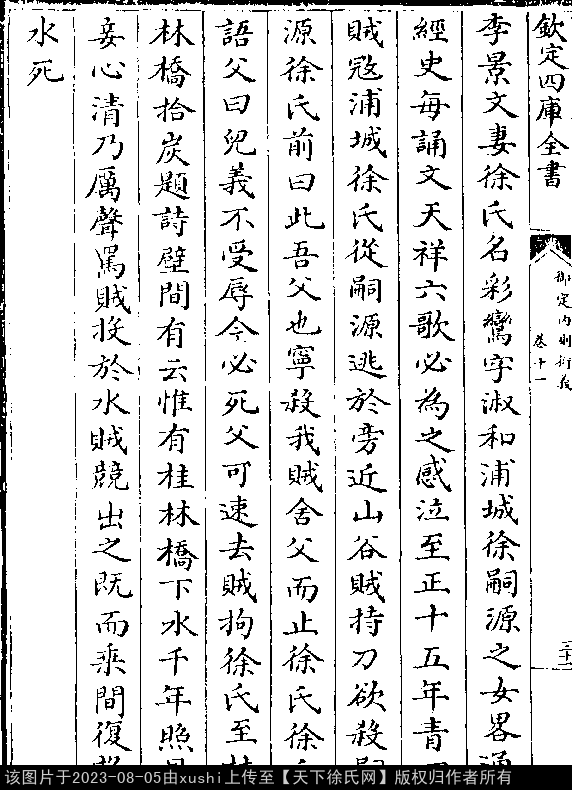 欽定四庫全書
御定內則衍義
卷十一
三十二
李景文妻徐氏名彩鸞字淑和浦城徐嗣源之女畧通
經史每誦文天祥六歌必為之感泣至正十五年青
賊寇浦城徐氏從嗣源逃於旁近山谷賊持刀欲殺嗣
源徐氏前曰此吾父也寧殺我賊舍父而止徐氏徐
語父曰兒義不受辱今必死父可速去賊拘徐氏至桂
林橋拾炭題詩壁間有云惟有桂林橋下水千年照見
妾心清乃厲聲罵賊投於水賊競出之既而乘間復投
水死
该图片于2023-08-05由xushi上传至【天下徐氏网】版权归作者所有